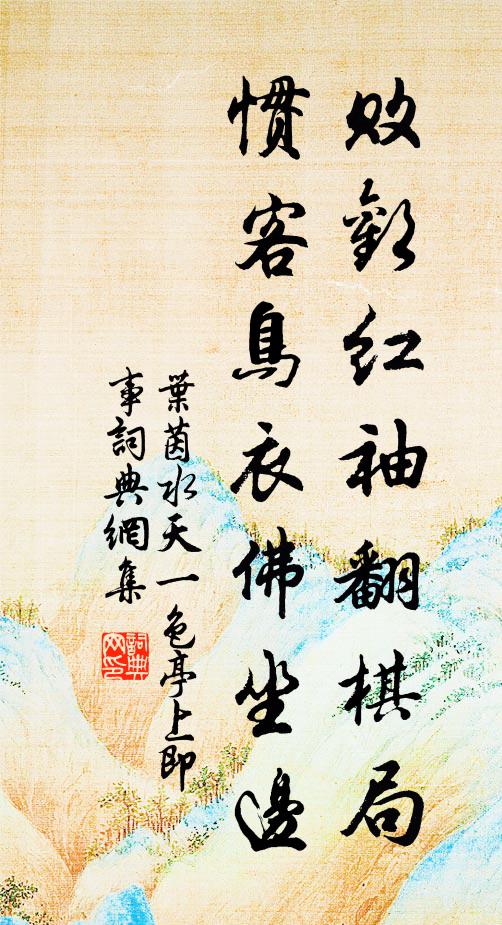 敗歡紅袖翻棋局
慣客烏衣佛坐邊
葉茵水天一色亭上即
事詞典網集
詞典
网印